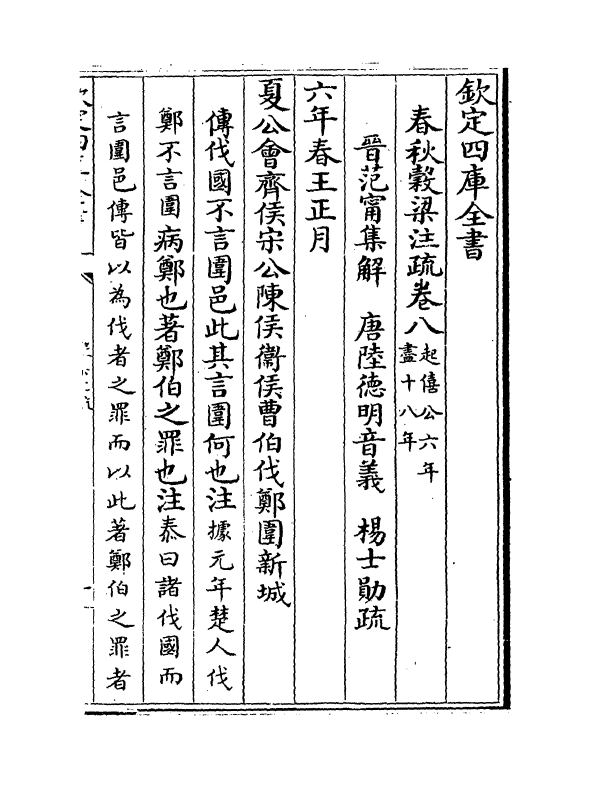 欽定四庫全書
春秋穀梁注疏卷八起僖公六年
盡十八年
晉范甯集解　唐陸德明音義　楊士勛疏
六年春王正月
夏公會齊侯宋公陳侯衞侯曹伯伐鄭圍新城
傳伐國不言圍邑此其言圍何也注據元年楚人伐
鄭不言圍病鄭也著鄭伯之罪也注泰曰諸伐國而
言圍邑傳皆以為伐者之罪而以此著鄭伯之罪者